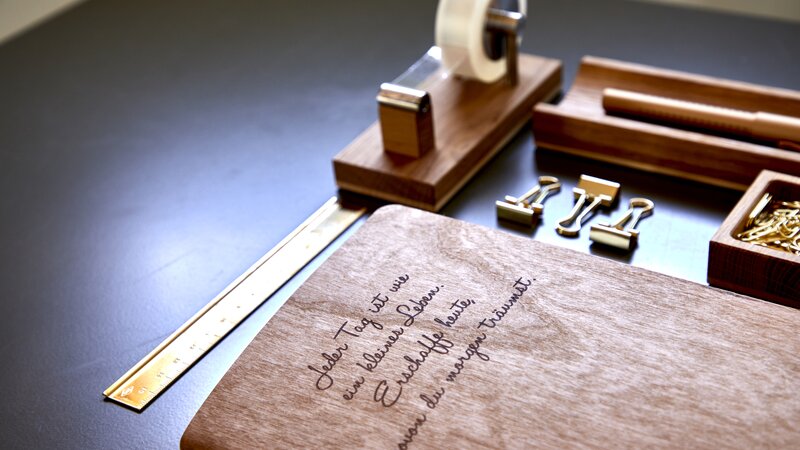 Jeder Tag ist wie
ein kleines Leben.
Erschaffe heute,
du morgen träumst.